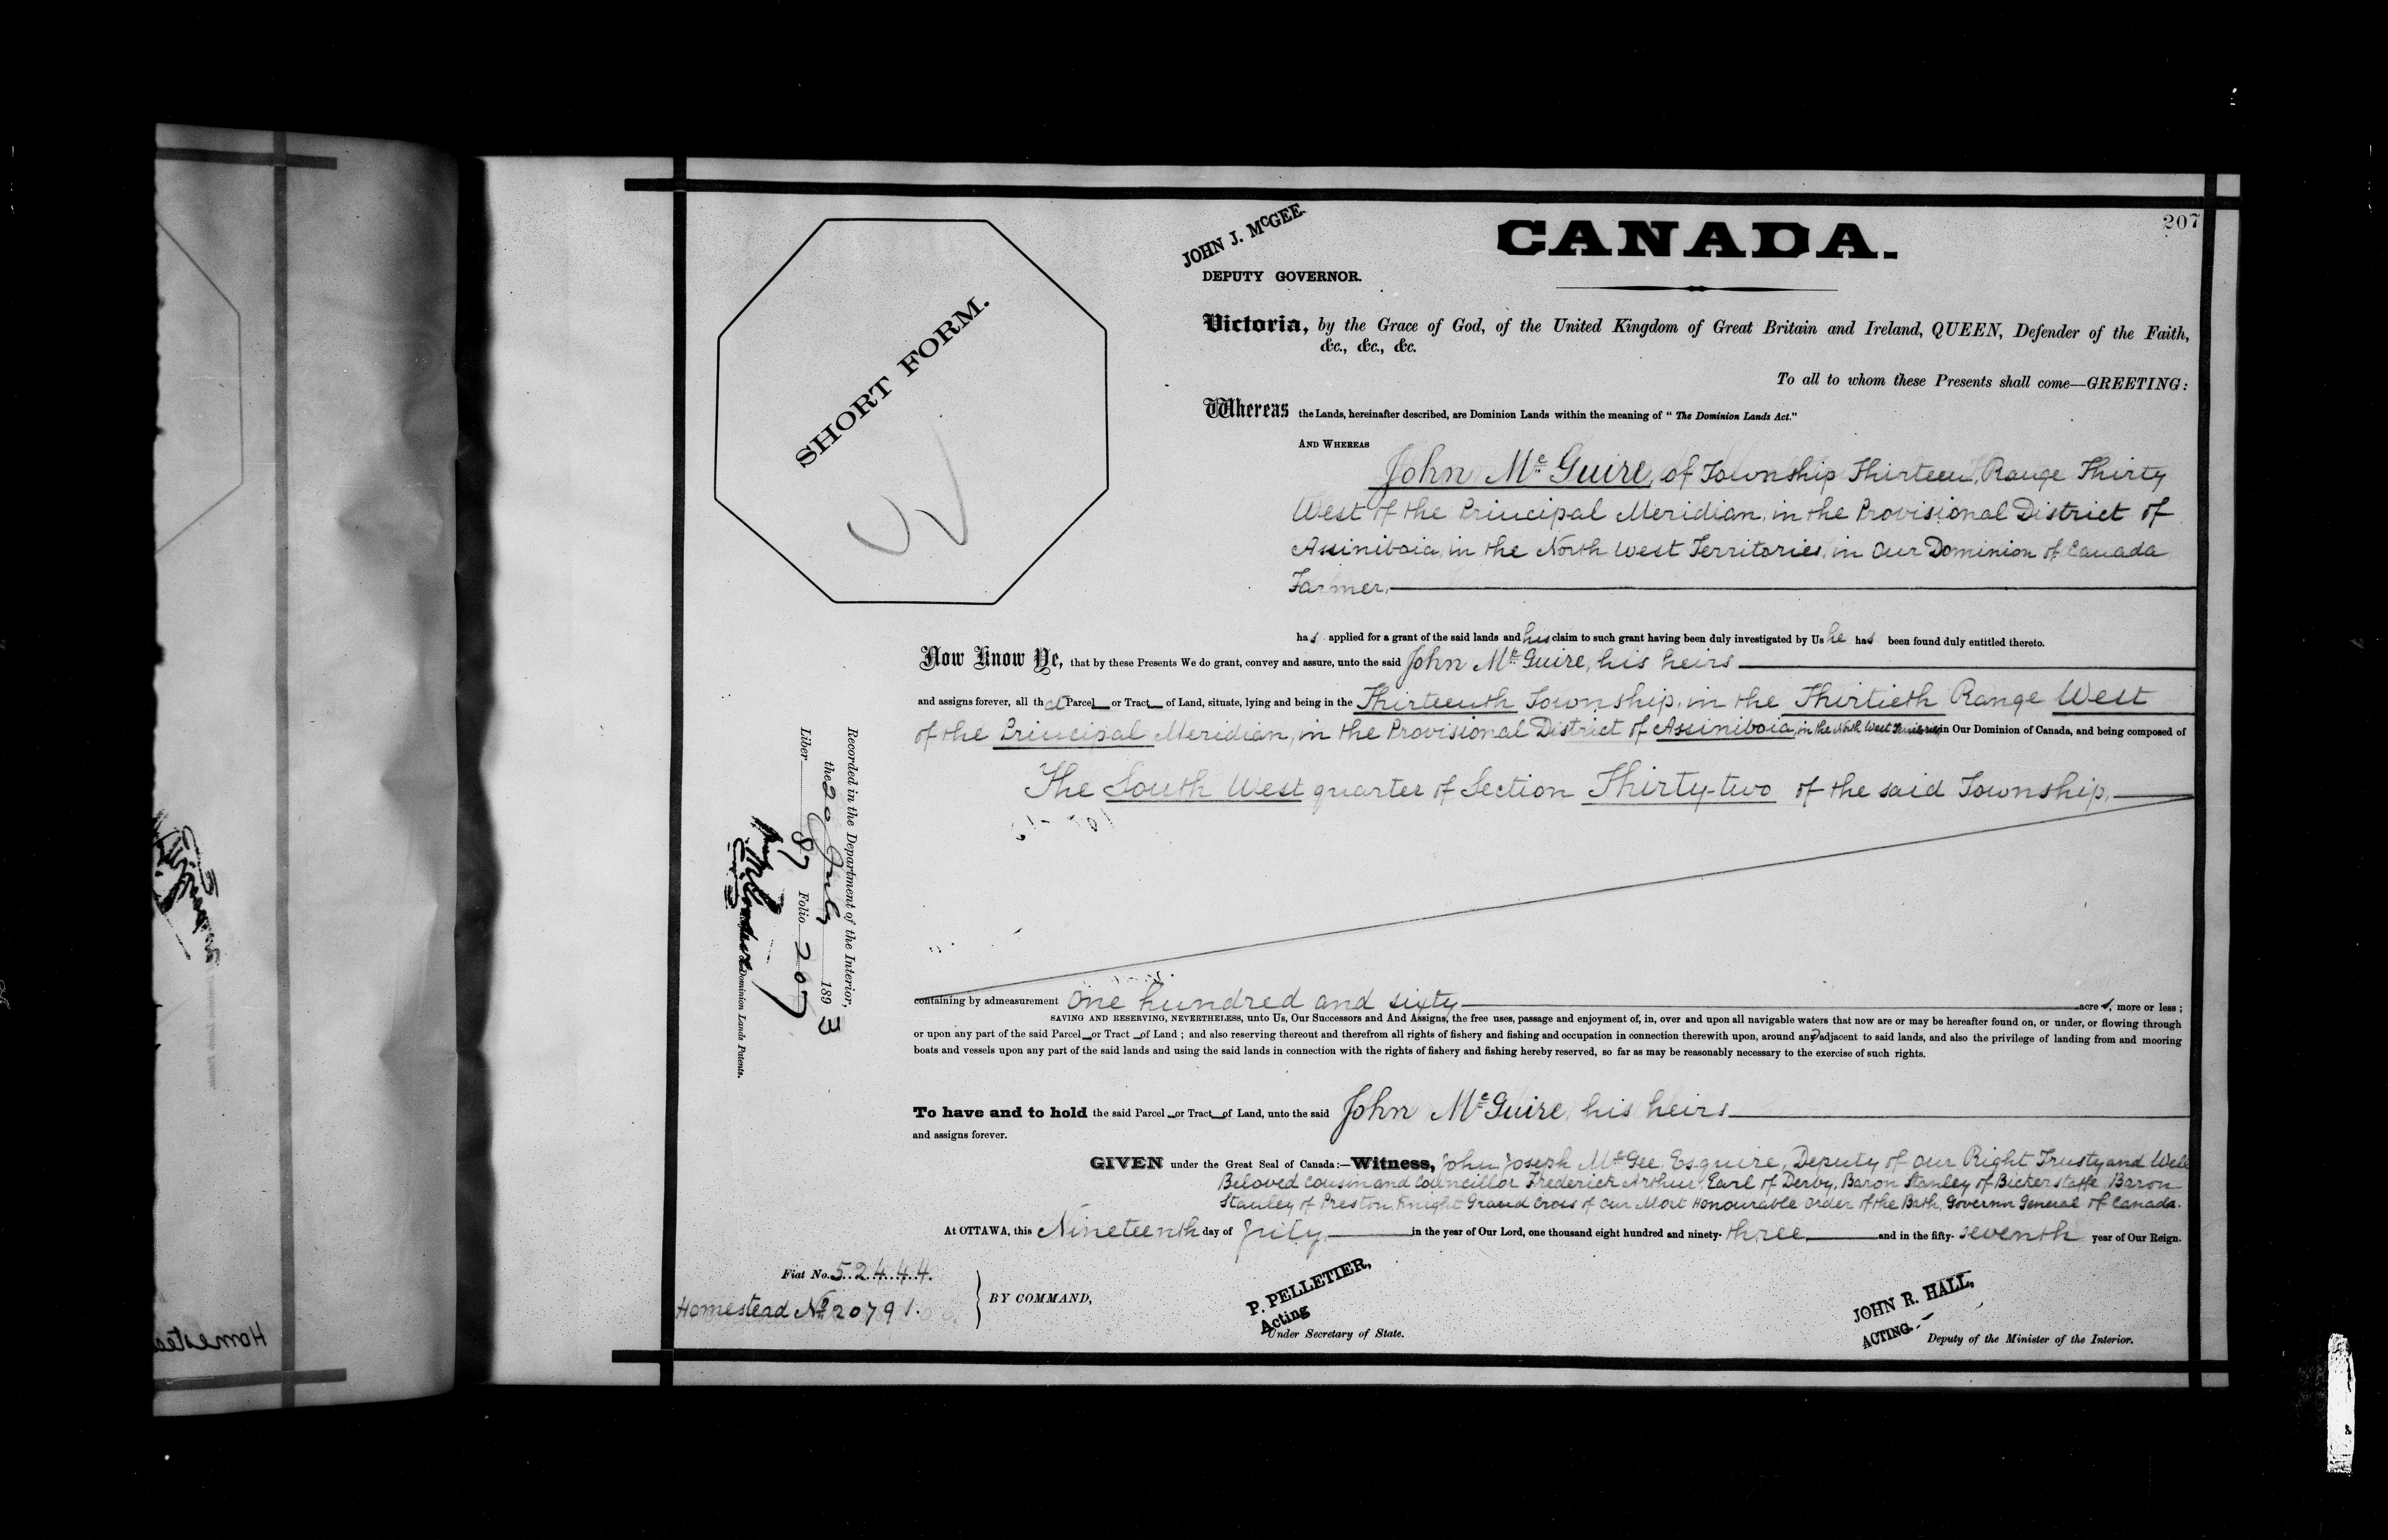 207
JOHN J. McGEE.
DEPUTY GOVERNOR.
CANADA.
SHORT FORM.
Victoria, by the Grace of God, of the United Kingdom of Great Britain and Ireland, QUEEN, Defender of the Faith,
&c., &c., &c.
To all to whom these Presents shall come—GREETING:
Whereas the Lands, hereinafter described, are Dominion Lands within the meaning of "The Dominion Lands Act."
AND WHEREAS
John McGuire, of Township Thirteen, Range Thirty
West of the Principal Meridian, in the Provisional District of
Assiniboia, in the North West Territories, in Our Dominion of Canada
Farmer.
has applied for a grant of the said lands and his claim to such grant having been duly investigated by Us he has been found duly entitled thereto.
Now Know Ye, that by these Presents We do grant, convey and assure, unto the said John McGuire, his heirs
and assigns forever, all that Parcel or Tract of Land, situate, lying and being in the Thirteenth Township, in the Thirtieth Range West
of the Principal Meridian, in the Provisional District of Assiniboia, in the North West Territories, in Our Dominion of Canada, and being composed of
The South West quarter of Section Thirty-two of the said Township.
Recorded in the Department of the Interior,
the 20 July 1893
Liber 87 Folio 207
Dominion Lands Patents.
containing by admeasurement one hundred and sixty acres, more or less;
SAVING AND RESERVING, NEVERTHELESS, unto Us, Our Successors and And Assigns, the free uses, passage and enjoyment of, in, over and upon all navigable waters that now are or may be hereafter found on, or under, or flowing through
or upon any part of the said Parcel or Tract of Land; and also reserving thereout and therefrom all rights of fishery and fishing and occupation in connection therewith upon, around and adjacent to said lands, and also the privilege of landing from and mooring
boats and vessels upon any part of the said lands and using the said lands in connection with the rights of fishery and fishing hereby reserved, so far as may be reasonably necessary to the exercise of such rights.
To have and to hold the said Parcel or Tract of Land, unto the said John McGuire, his heirs
and assigns forever.
GIVEN under the Great Seal of Canada:—Witness, John Joseph McGee, Esquire, Deputy of Our Right Trusty and Well
Beloved Cousin and Councillor Frederick Arthur, Earl of Derby, Baron Stanley of Bickerstaffe, Baron
Stanley of Preston, Knight Grand Cross of Our Most Honourable Order of the Bath, Governor General of Canada.
At OTTAWA, this Nineteenth day of July in the year of Our Lord, one thousand eight hundred and ninety-three and in the fifty-seventh year of Our Reign.
Fiat No. 52444.
Homestead No 20791.
BY COMMAND,
P. PELLETIER,
Acting
Under Secretary of State.
JOHN R. HALL,
ACTING.
Deputy of the Minister of the Interior.